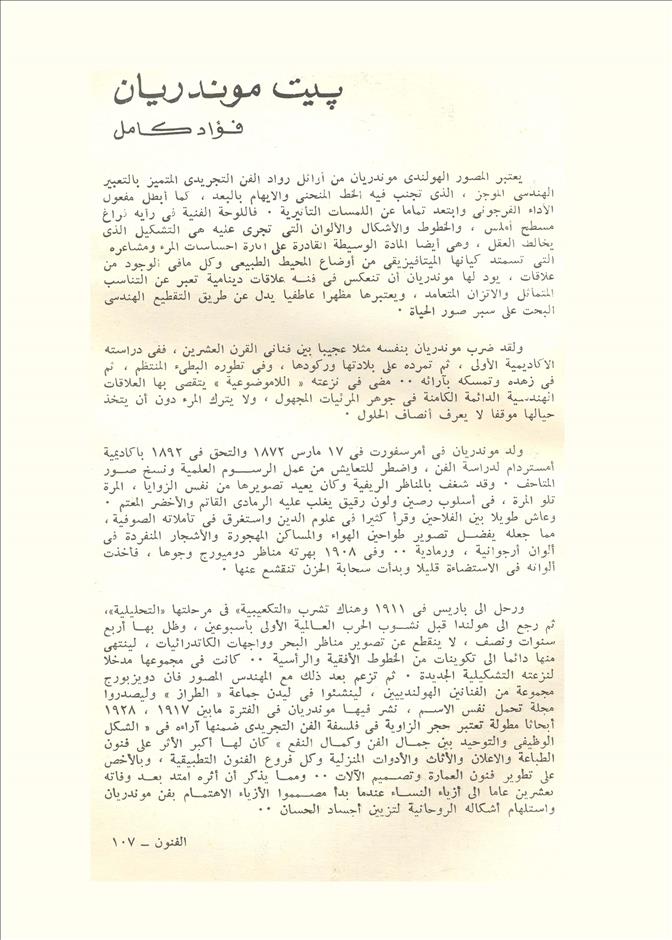 پييت موندريان
فؤاد كامل
يعتبر المصور الهولندى موندريان من أوائل رواد الفن التجريدى المتميز بالتعبير
الهندسى الموجز ، الذى تجنب فيه الخط المنحنى والايهام بالبعد ، كما أبطل مفعول
الأداء الفرجونى وابتعد تماما عن اللمسات التأثيرية ٠ فاللوحة الفنية فى رأيه فراغ
مسطح أملس ، والخطوط والأشكال والألوان التى تجرى عليه هى التشكيل الذى
يخالط العقل ، وهى أيضا المادة الوسيطة القادرة على اثارة احساسات المرء ومشاعره
التى تستمتد كيانها الميتافيزيقى من أوضاع المحيط الطبيعى وكل مافى الوجود من
علاقات ، يود لها موندريان أن تنعكس فى فنه علاقات دينامية تعبر عن التناسب
المتماثل والاتزان المتعامد ، ويعتبرها مظهرا عاطفيا يدل عن طريق التقطيع الهندسى
البحت على سبر صور الحياة ٠
ولقد ضرب موندريان بنفسه مثلا عجيبا بين فنانى القرن العشرين ، ففى دراسته
الاكاديمية الأولى ، ثم تمرده على بلادتها وركودها ، وفى تطوره البطىء المنتظم ، ثم
فى زهده وتمسكه بآرائه ٠٠ مضى فى نزعته « اللاموضوعية » يتقصى بها العلاقات
الهندسية الدائمة الكامنة فى جوهر المرئيات المجهول ، ولا يترك المرء دون أن يتخذ
حيالها موقفا لا يعرف أنصاف الحلول ٠
ولد موندريان فى أمرسفورت فى ١٧ مارس ١٨٧٢ والتحق فى ١٨٩٢ باكاديمية
أمستردام لدراسة الفن ، واضطر للتعايش من عمل الرسوم العلمية ونسخ صور
المتاحف ٠ وقد شغف بالمناظر الريفية وكان يعيد تصويرها من نفس الزوايا ، المرة
تلو المرة ، فى أسلوب رصين ولون رقيق يغلب عليه الرمادى القاتم والأخضر المعتم ٠
وعاش طويلا بين الفلاحين وقرأ كثيرا فى علوم الدين واستغرق فى تأملاته الصوفية ،
مما جعله يفضل تصوير طواحين الهواء والمساكن المهجورة والأشجار المنفردة فى
ألوان أرجوانية ، ورمادية ٠٠ وفى ١٩٠٨ بهرته مناظر دومبورج وجوها ، فأخذت
ألوانه فى الاستضاءة قليلا وبدأت سحابة الحزن تنقشع عنها ٠
ورحل الى باريس فى ١٩١١ وهناك تشرب «التكعيبية» فى مرحلتها «التحليلية»،
ثم رجع الى هولندا قبل نشوب الحرب العالمية الأولى بأسبوعين ، وظل بها أربع
سنوات ونصف ، لا ينقطع عن تصوير مناظر البحر وواجهات الكاتدرائيات ، لينتهى
منها دائما الى تكوينات من الخطوط الأفقية والرأسية ٠٠ كانت فى مجموعها مدخلا
لنزعته التشكيلية الجديدة ٠ ثم تزعم بعد ذلك مع المهندس المصور فان دويزبورج
مجموعة من الفنانين الهولنديين ، لينشئوا فى ليدن جماعة « الطراز » وليصدروا
مجلة تحمل نفس الاسم ، نشر فيها موندريان فى الفترة مابين ١٩١٧ ، ١٩٢٨
أبحاثا مطولة تعتبر حجر الزاوية فى فلسفة الفن التجريدى ضمنها آراءه فى « الشكل
الوظيفى والتوحيد بين جمال الفن وكمال النفع » كان لها أكبر الأثر على فنون
الطباعة والاعلان والأثاث والأدوات المنزلية وكل فروع الفنون التطبيقية ، وبالأخص
على تطوير فنون العمارة وتصميم الآلات ٠٠ ومما يذكر أن أثره امتد بعد وفاته
بعشرين عاما الى أزياء النساء عندما بدأ مصممو الأزياء الاهتمام بفن موندريان
واستلهام أشكاله الروحانية لتزيين أجساد الحسان ٠٠
الفنون ــ ١٠٧